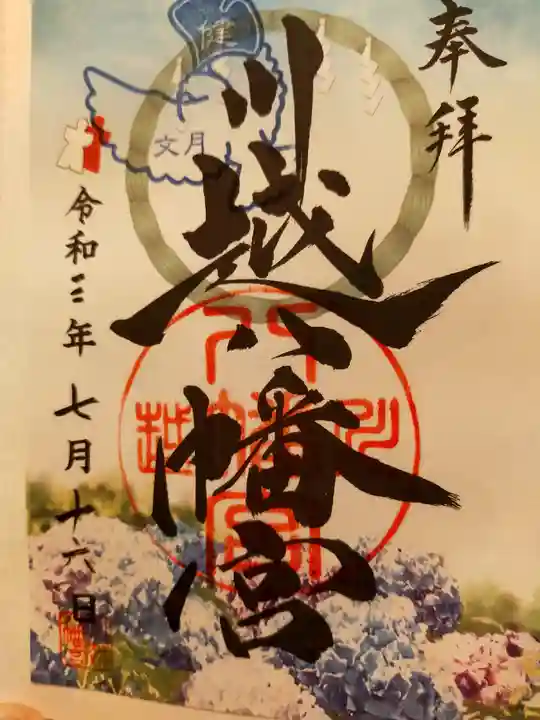 奉拝
川越八幡宮
健
文月
令和三年七月十六日
川
越
八幡
宮